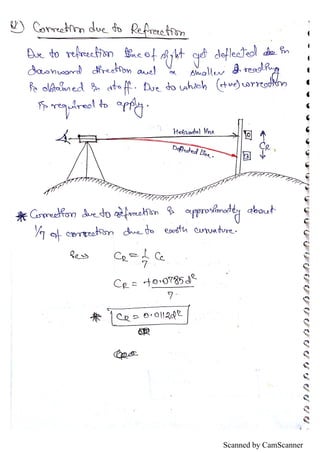 Correction due to Refraction
Due to refraction line of sight get deflected in
downward direction and a smaller reading
is obtained on staff. Due to which (+ve) correction
is required to apply.
Horizontal line
Deflected line.
CR
* Correction due to refraction is approximately about
1/7 of correction due to earth curvature.
CR = 1/7 Cc
CR = +0.0785d²/7
* CR = 0.0112d²
Scanned by CamScanner